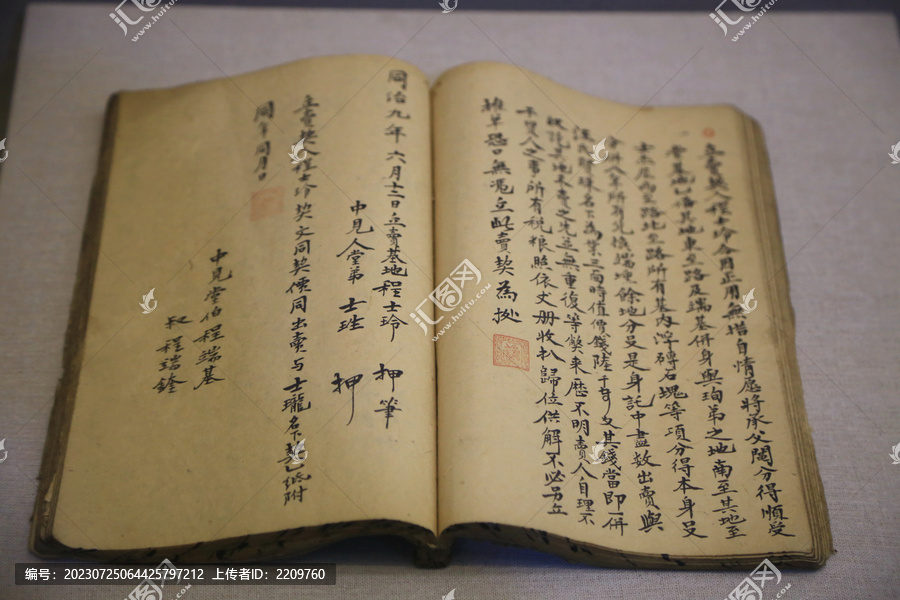 立賣契人程士玲今因正用無措自情愿將承父鬮分得順受
基地一備其地東至路及瑞基併身與珣弟之地南至其地至
士杰屋西至路北至路所有基內浮磚石塊等項分得本身㕛
分併入本所有兑換墙埂餘地分㕛是身託中盡数出賣與
名下為業三面時值價錢陸千文其錢當即一併
收訖其地未賣之先並無重復等獘来歷不明賣人自理不
干買人之事所有税粮照依丈册收扒歸位供解不必另立
推单恐口無凭立此賣契為拠
同治九年六月十二日立賣基地程士玲 押筆
中見人堂弟 士甡 押
立賣契人程士玲契文同契價同出賣与士瓏名下契紙附
同年同月日
中見堂伯程瑞基
叔程瑞鎽
编号：20230725064425797212 上传者ID：2209760
汇图网
www.huitu.com